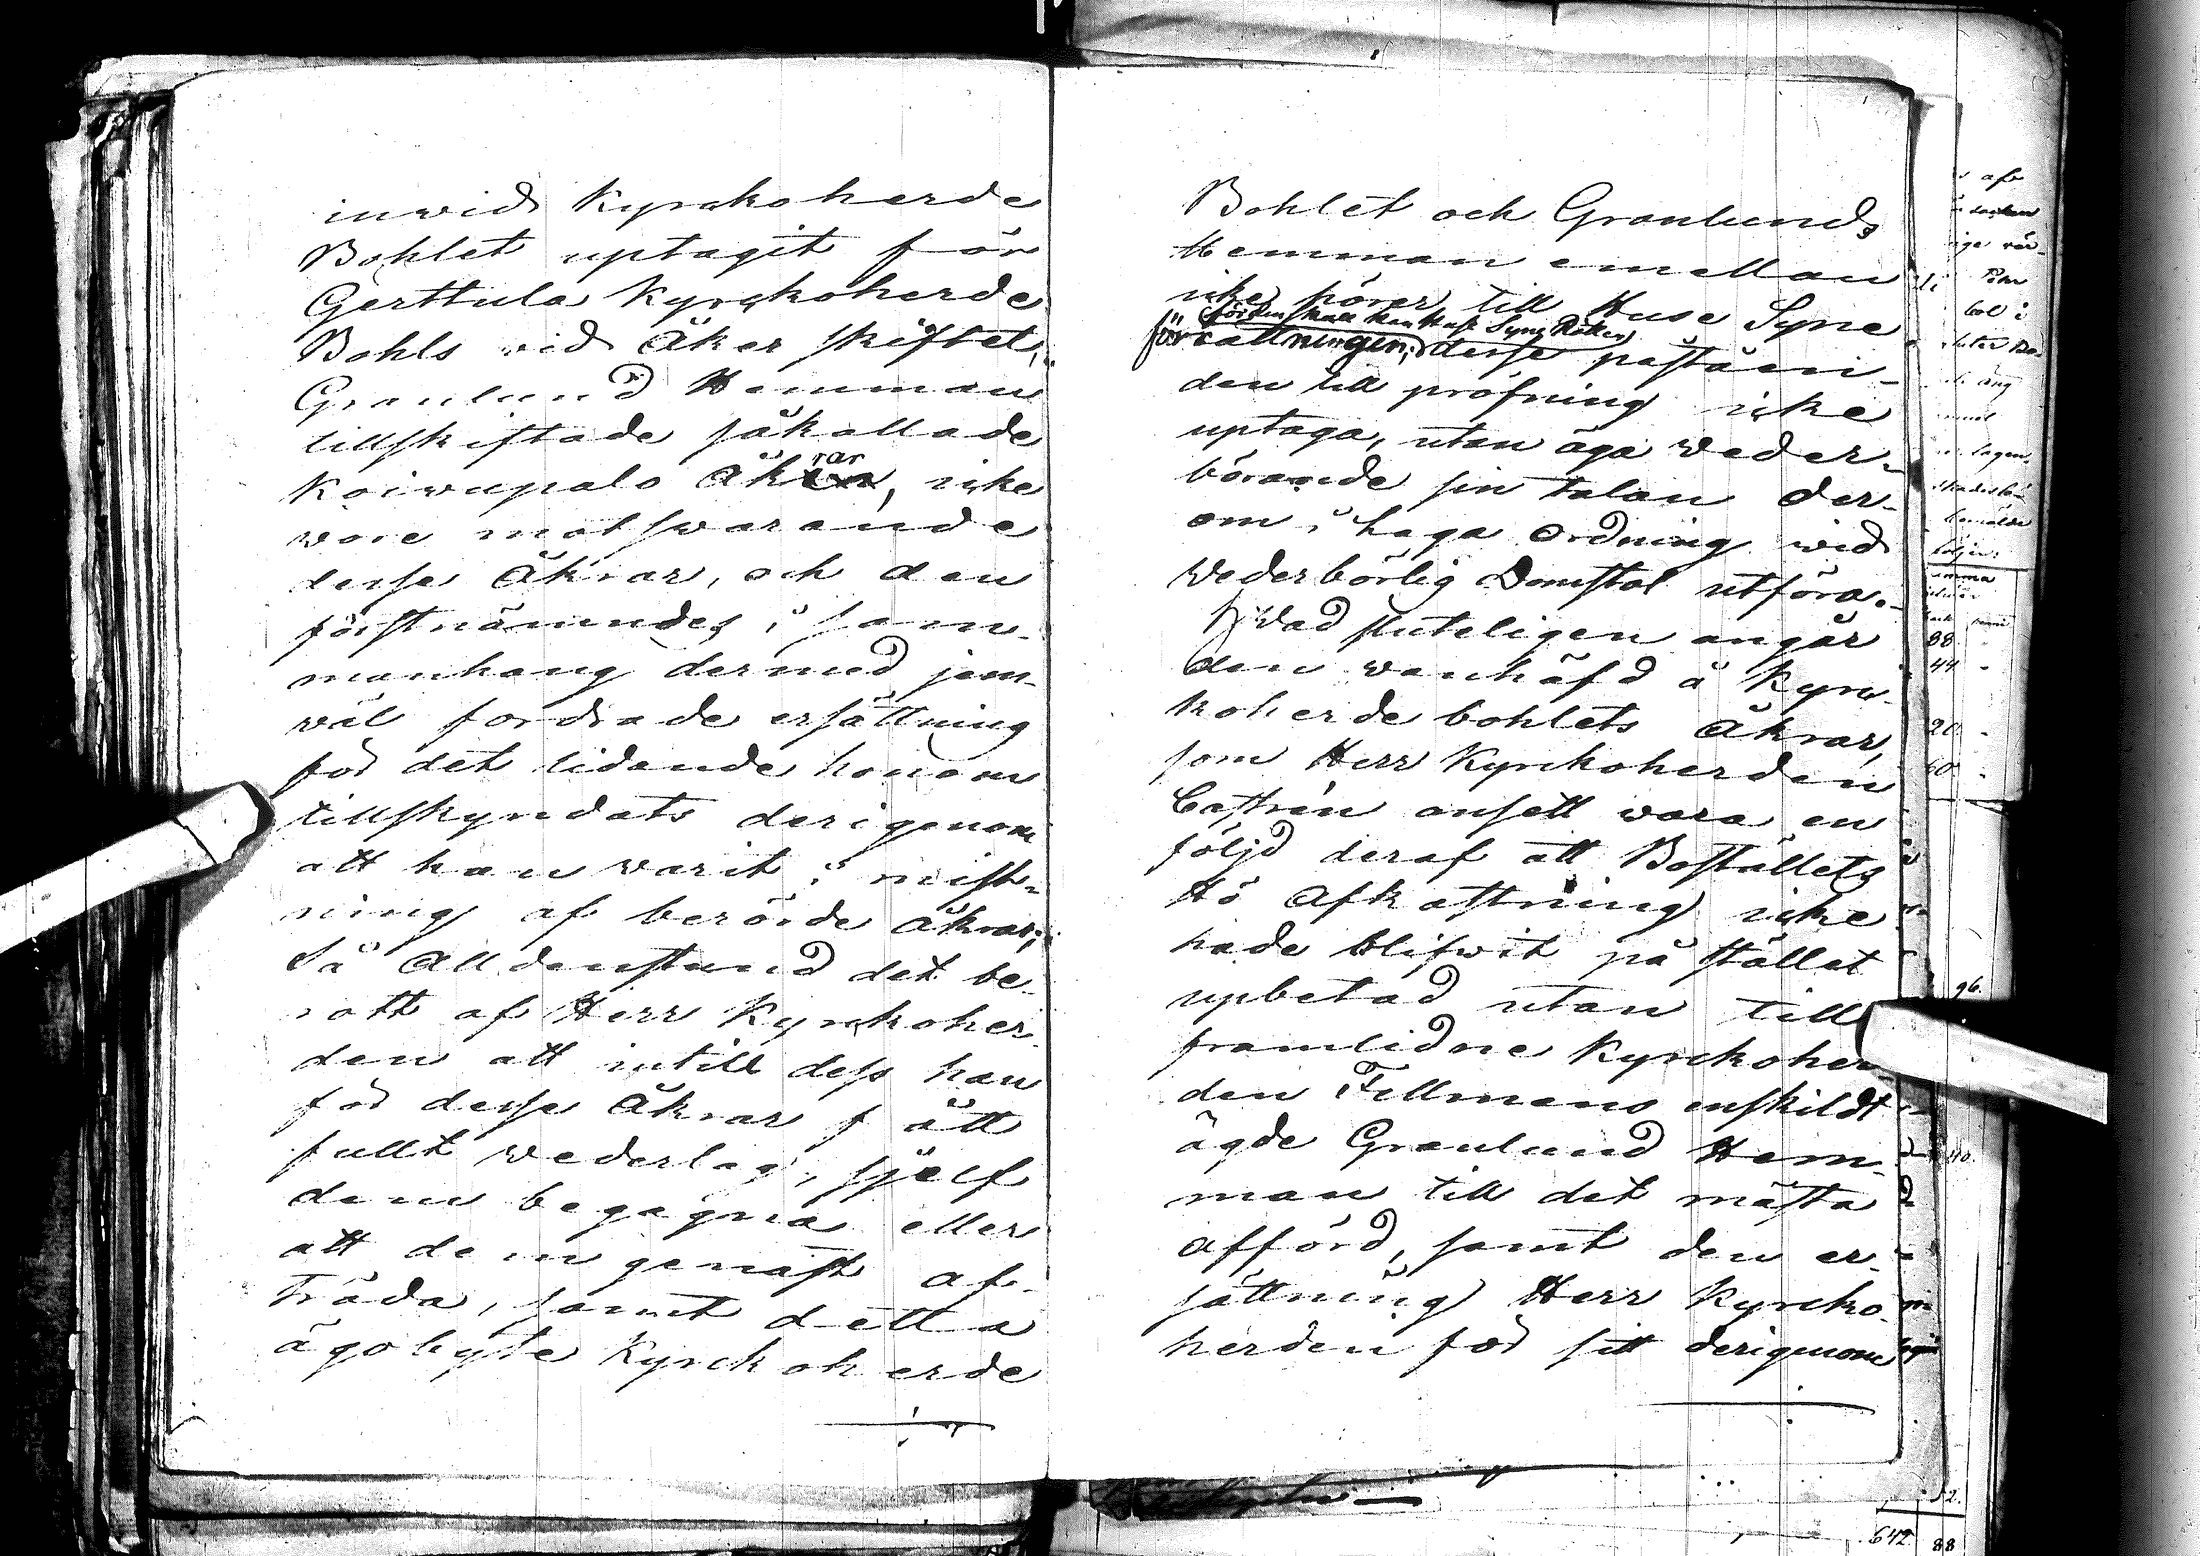 inwid Kyrckoherde
Bohlet uptagit för
Gerttula Kyrckoherde
Bohls vid Åker skiftet,
Granlund Hemman
tillskiftade såkallade
Koiwupalo Åkrar, icke
vore motswarande
desse Åkrar, och den
förstnämndes i sam-
manhang dermed jem-
väl fordrade ersättning
för det lidande honom
tillskyndats derigenom
att han varit i mist-
ning af berörde åkrar;
Så Alldenstund det be-
rott af Herr Kyrckoher-
den att intill dess han
för desse Åkrar fått
fullt wederlag, sjelf
dem begagna eller
att dem genast af-
träda, samt detta
ägobyte Kyrckoherde
Bohlet och Granlunds
Hemman emellan
icke hörer till Huse Syne
förrättningen; Syne Rätten
desse påståen-
den till pröfning icke
uptaga, utan äga weder-
börande sin talan der-
om i laga Ordning wid
Wederbörlig Domstol utföra.
Hwad sluteligen angår
den wanhäfd å Kyrc-
koherde bohlets Åkrar,
som Herr Kyrckoherden
Castrén ansett wara en
följd deraf att Boställets
Hö Afkastning icke
hade blifwit på stället
upbetad utan till
framlidne Kyrckoher-
den Fellmans enskildt
ägde Granlund Hem-
man till det mästa
afförd, samt den er-
sättning Herr Kyrcko-
herden för sitt derigenom
88
44
20
60
96.
52.
642. 88